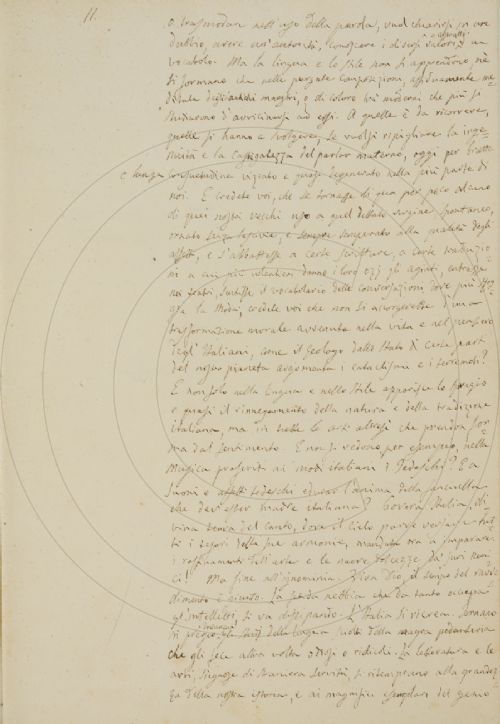 11.
o trasmodare nell'uso della parola, vuol chiarirsi in ove
dubbio, avere un'autorità, conoscere i diversi valori d'un
vocabolo. Ma la lingua e lo stile non si apprendono nè
si formano che nelle pregiate composizioni, assiduamente me
ditate degli antichi maestri, o di coloro tra' moderni che più si
studiarono d'avvicinarsi ad essi. A quelle è da ricorrere,
quelle si hanno a svolgere, se vuolsi ripigliare la inge
nuità e la castigatezza del parlar materno, oggi per
e lunga consuetudine viziato e quasi degenerato nella più parte di
noi. E credete voi, che se tornasse di qua per poco alcuno
di quei nostri vecchi uso a quel dettato vergine spontaneo,
ornato senza lascivie, e sempre temperato alla natura degli
affetti, e s'abbattesse a certe scritture, a certe traduzio
ni a cui più volentieri danno i loro ozj gli agiati, entrasse
nei teatri, sentisse il vocabolario delle conversazioni dove più
la Moda, credete voi che non si accorgerebbe d'una
trasformazione morale avvenuta nella vita e nel pensiero
degl'Italiani, come il geologo dallo stato di certe parti
del nostro pianeta argomenta i cataclismi e i terremoti?
E non solo nella lingua e nello stile apparisce lo spregio
e quasi il rinnegamento della natura e della tradizione
italiana, ma in tutte le arti altresì che prendon for
ma dal sentimento. E non si vedono per esempio, nella
Musica preferiti ai modi italiani i Tedeschi? E a
suoni e affetti tedeschi educar l'anima della fanciulla
che dev'esser madre italiana? Povera Italia, di
vina terra del canto, dove il cielo parve versasse tut
ti i tesori delle sue armonie, mandata ora a imparare
i raffinamenti dell'arte e le nuove da' suoi
ci! Ma fine all'ignominia. Viva Dio, il tempo del ravve
dimento è giunto. La nebbia che da tanto occupa
gl'intelletti, si va dissipando. L'Italia si ricerca. Tornano
in pregio gli studj della lingua fuori della magra pedanteria
che gli fece altra volta odiosi e ridicoli. La letteratura e le
arti, sdegnose di straniera servitù, si ritemprano alla grandez
za della nostra istoria, e ai magnifici esemplari del genio